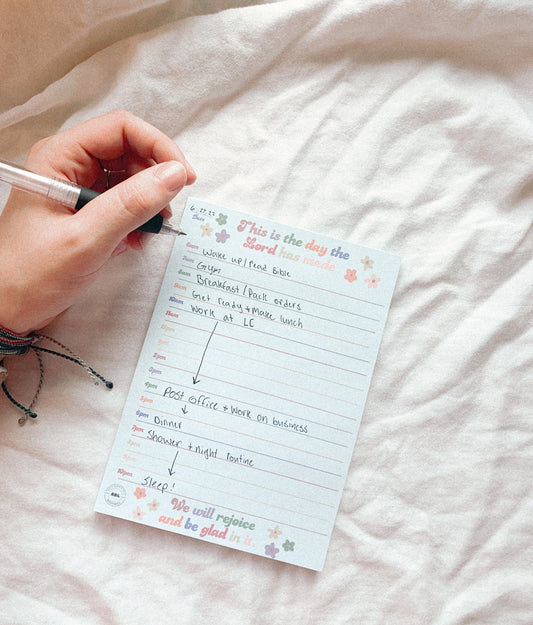 6.27.22
This is the day the
Lord has made
6am Wake up/read Bible
7am Gym
8am Breakfast/Pack orders
9am Get ready + make lunch
10am Work at LC
11am
1pm
2pm
3pm
4pm Post Office + Work on business
5pm
6pm Dinner
7pm Shower + night routine
8pm
9pm
10pm Sleep!
We will rejoice
and be glad in it.